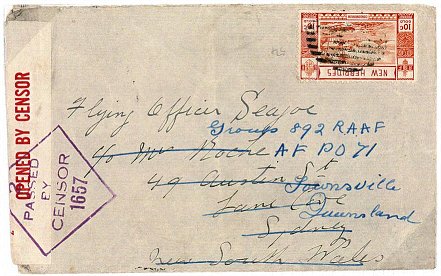 10c
GOLD
10c
GOLD
NEW HEBRIDES
OPENED BY CENSOR
PASSED
BY
CENSOR
1657
Flying Officer Seagoe
Group 892 RAAF
c/o Mrs Roche AFPO 71
49 Austin St
Townsville
Lane Cove
Queensland
Sydney
New South Wales